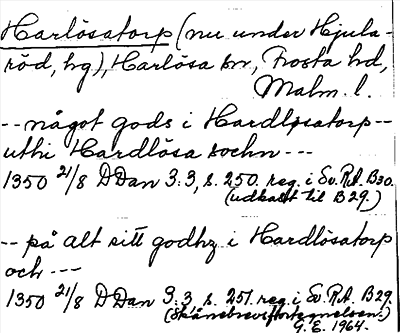 Harlösatorp (nu under Hjula-
röd, hg), Harlösa sn, Frosta hd,
Malm. l.
-- något gods i Hardløsatorp --
uthi Hardlösa sochn ---
1350 21/8 DDan 3:3, s. 250. reg. i Sv. RA. B30.
(udkast til B29.)
-- på alt sitt godhz i Hardlösatorp
och ---
1350 21/8 DDan 3:3, s. 251. reg. i Sv. RA. B29.
(Skånebrevfortegnelsen.)
G. E. 1964.